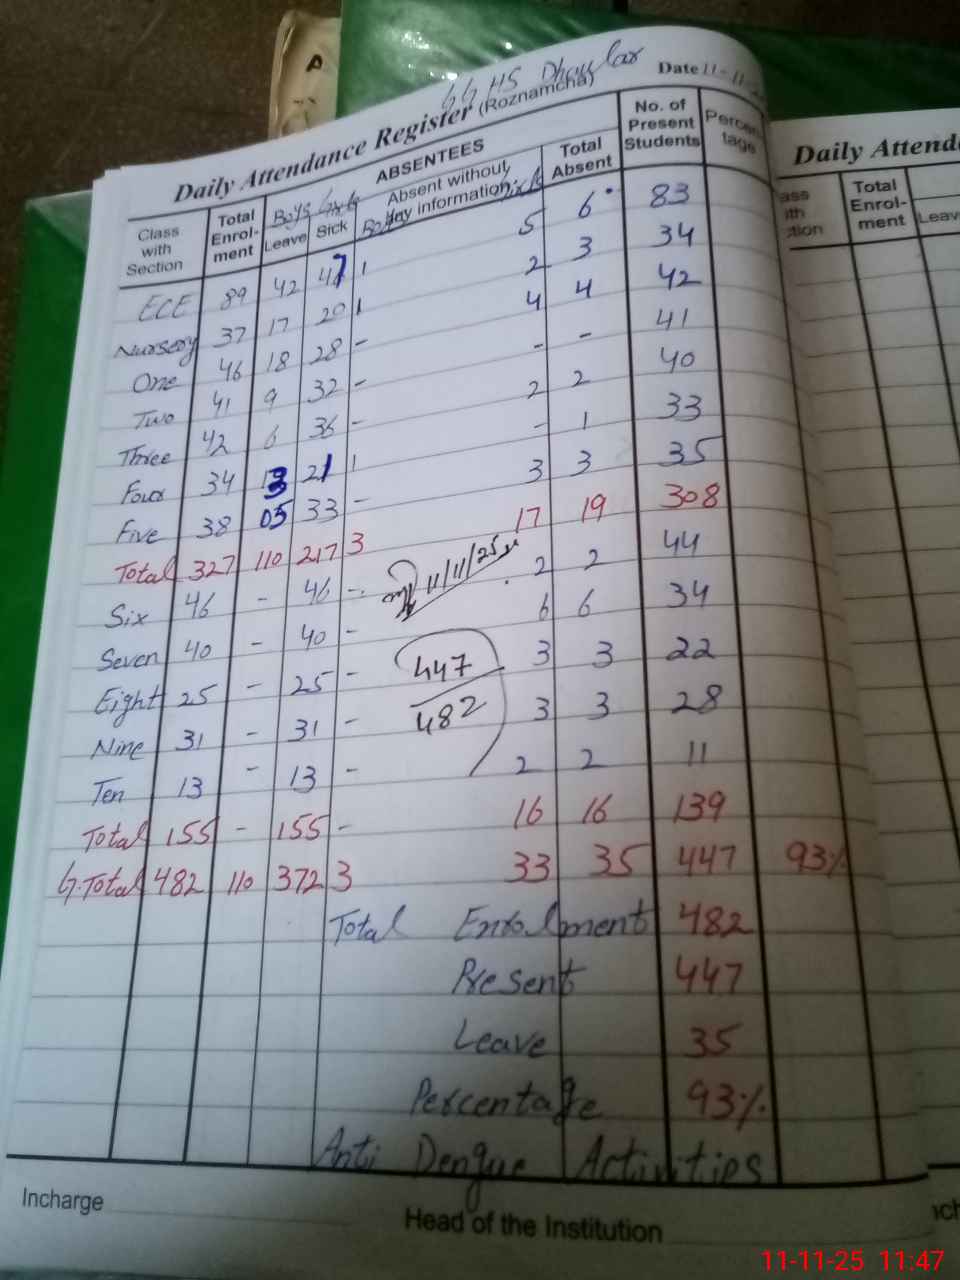 A
GGHS Dhaular
Daily Attendance Register (Roznamcha) Date 11-11-
Class with Section
Total Enrol-ment
ABSENTEES
Boys Girls
Leave
Sick
Absent without any information
Boys Girls
Total Absent
No. of Present Students
Percentage
ECE 89 42 47 1 5 6 83
Nursery 37 17 20 1 2 3 34
One 46 18 28 - 4 4 42
Two 41 9 32 - - - 41
Three 42 6 36 - 2 2 40
Four 34 13 21 1 - 1 33
Five 38 05 33 - 3 3 35
Total 327 110 217 3 17 19 308
11/11/25
Six 46 - 46 - 2 2 44
Seven 40 - 40 - 6 6 34
Eight 25 - 25 - 3 3 22
447
482
Nine 31 - 31 - 3 3 28
Ten 13 - 13 - 2 2 11
Total 155 - 155 - 16 16 139
G.Total 482 110 372 3 33 35 447 93%
Total Enrolment 482
Present 447
Leave 35
Percentage 93%
Anti Dengue Activities
Incharge
Head of the Institution
Daily Attend
ass
ith
tion
Total Enrol-ment
Leav
nch
11-11-25 11:47